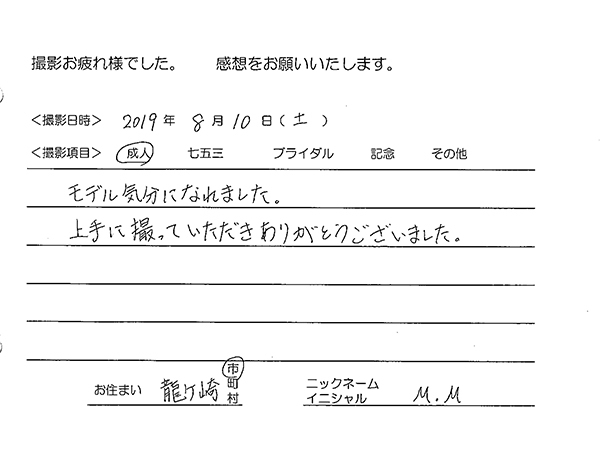 撮影お疲れ様でした。 感想をお願いいたします。
<撮影日時> 2019年 8月10日(土)
<撮影項目> 成人 七五三 ブライダル 記念 その他
モデル気分になれました。
上手に撮っていただきありがとうございました。
お住まい 龍ヶ崎 市町村 ニックネーム イニシャル M.M